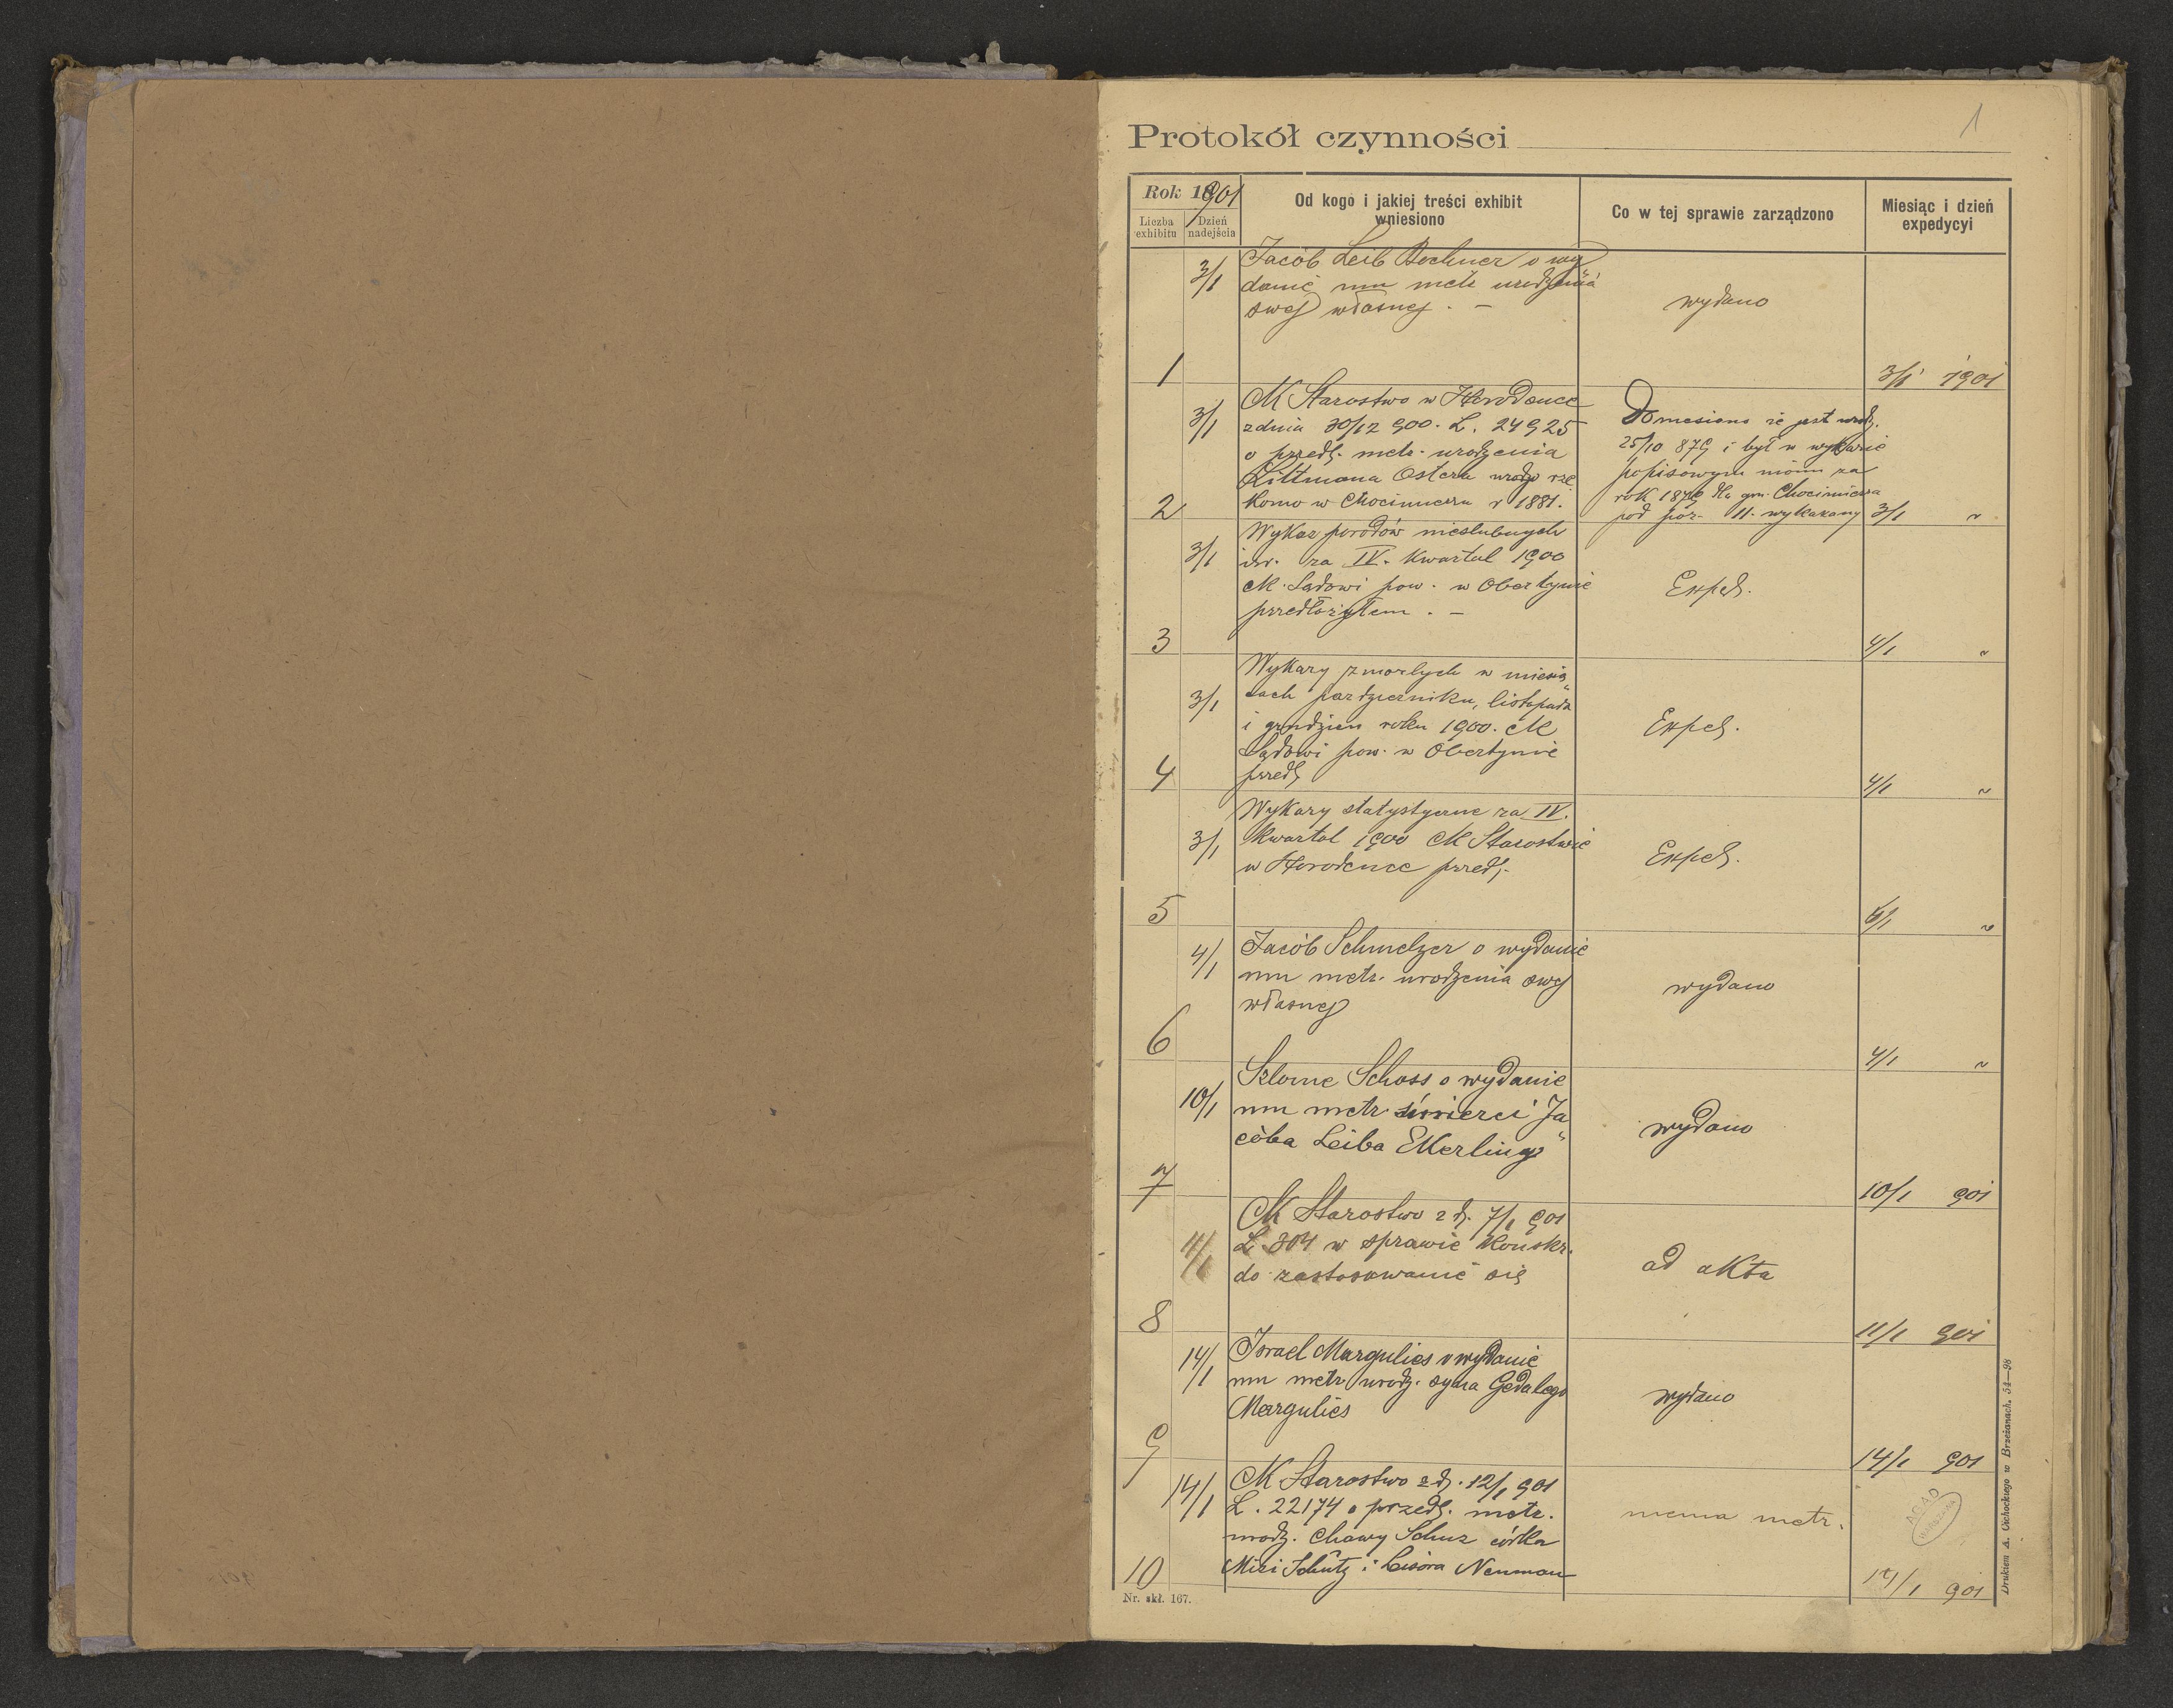 1
Protokół czynności
Rok 1901
Liczba exhibitu
Dzień nadejścia
Od kogo i jakiej treści exhibit
wniesiono
Co w tej sprawie zarządzono
Miesiąc i dzień
expedycyi
1
3/1
Jacób Leib Bochner o wy
danie mu metr urodzenia
swej własnej . —
wydano
3/1 1901
2
3/1
CK Starostwo w Horodence
z dnia 30/12 900. L. 24925
o przedł. metr. urodzenia
Littmana Ostera urodz rze
komo w Chocimierzu r 1881.
Doniesiono że jest urodz.
25/10 879 i był w wykazie
popisowym za
rok 1879 dla gm. Chocimierza
pod poz. 11. wykazany
3/1 "
3
3/1
Wykaz porodów nieslubnych
izr. za IV. kwartal 1900
CK. Sądowi pow. w Obertynie
przedłożyłem . —
Exped.
4/1 "
4
3/1
Wykazy zmarlych w miesią
cach pazdzierniku, listopada
i grudzien roku 1900. CK
Sądowi pow. w Obertynie
przedł
Exped.
4/1 "
5
3/1
Wykazy statystyczne za IV.
kwartal 1900 CK Starostwie
w Horodence przedł.
Exped.
4/1 "
6
4/1
Jacób Schmelzer o wydanie
mu metr. urodzenia swej
własnej
wydano
4/1 "
7
10/1
Szlome Schoss o wydanie
mu metr śmierci Ja
cóba Leiba Ekerling
wydano
10/1 901
8
11/1
CK Starostwo z d. 7/1 901
L. 304 w sprawie konskr.
do zastosowanie się
ad akta
11/1 901
9
14/1
Israel Margulies o wydanie
mu metr urodz. syna Gedalego
Margulies
wydano
14/1 901
10
14/1
CK Starostwo z d. 12/1 901
L. 22174 o przedł. metr.
urodz. Chawy Schuz córka
Mizi Schutz i Leisora Neuman
niema metr.
14/1 901
AGAD
Nr. skł. 167.
Drukiem A. Cichockiego w Brzeżanach. 54—98